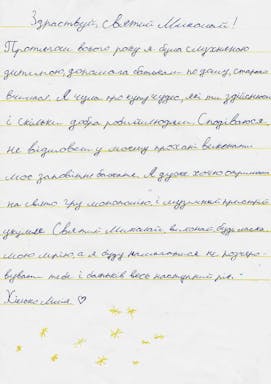 Здраствуй, святий Миколай!
Протягом всього року я була слухняною
дитиною, допомагала батькам по дому, старанно
вчилася. Я чула про купу чудес, які ти здійснив
і скільки добра робиш людям. Сподіваюся,
не відмовиш у моєму проханні виконати
моє заповітне бажання. Я дуже хочу отримати
на свято гру монополію і музичний пристрій
Святий Миколай, виконай будь ласка
мою мрію, а я буду намагатися не розчаро-
вувати тебе і батьків весь наступний рік.
Хінько Юлія ♡